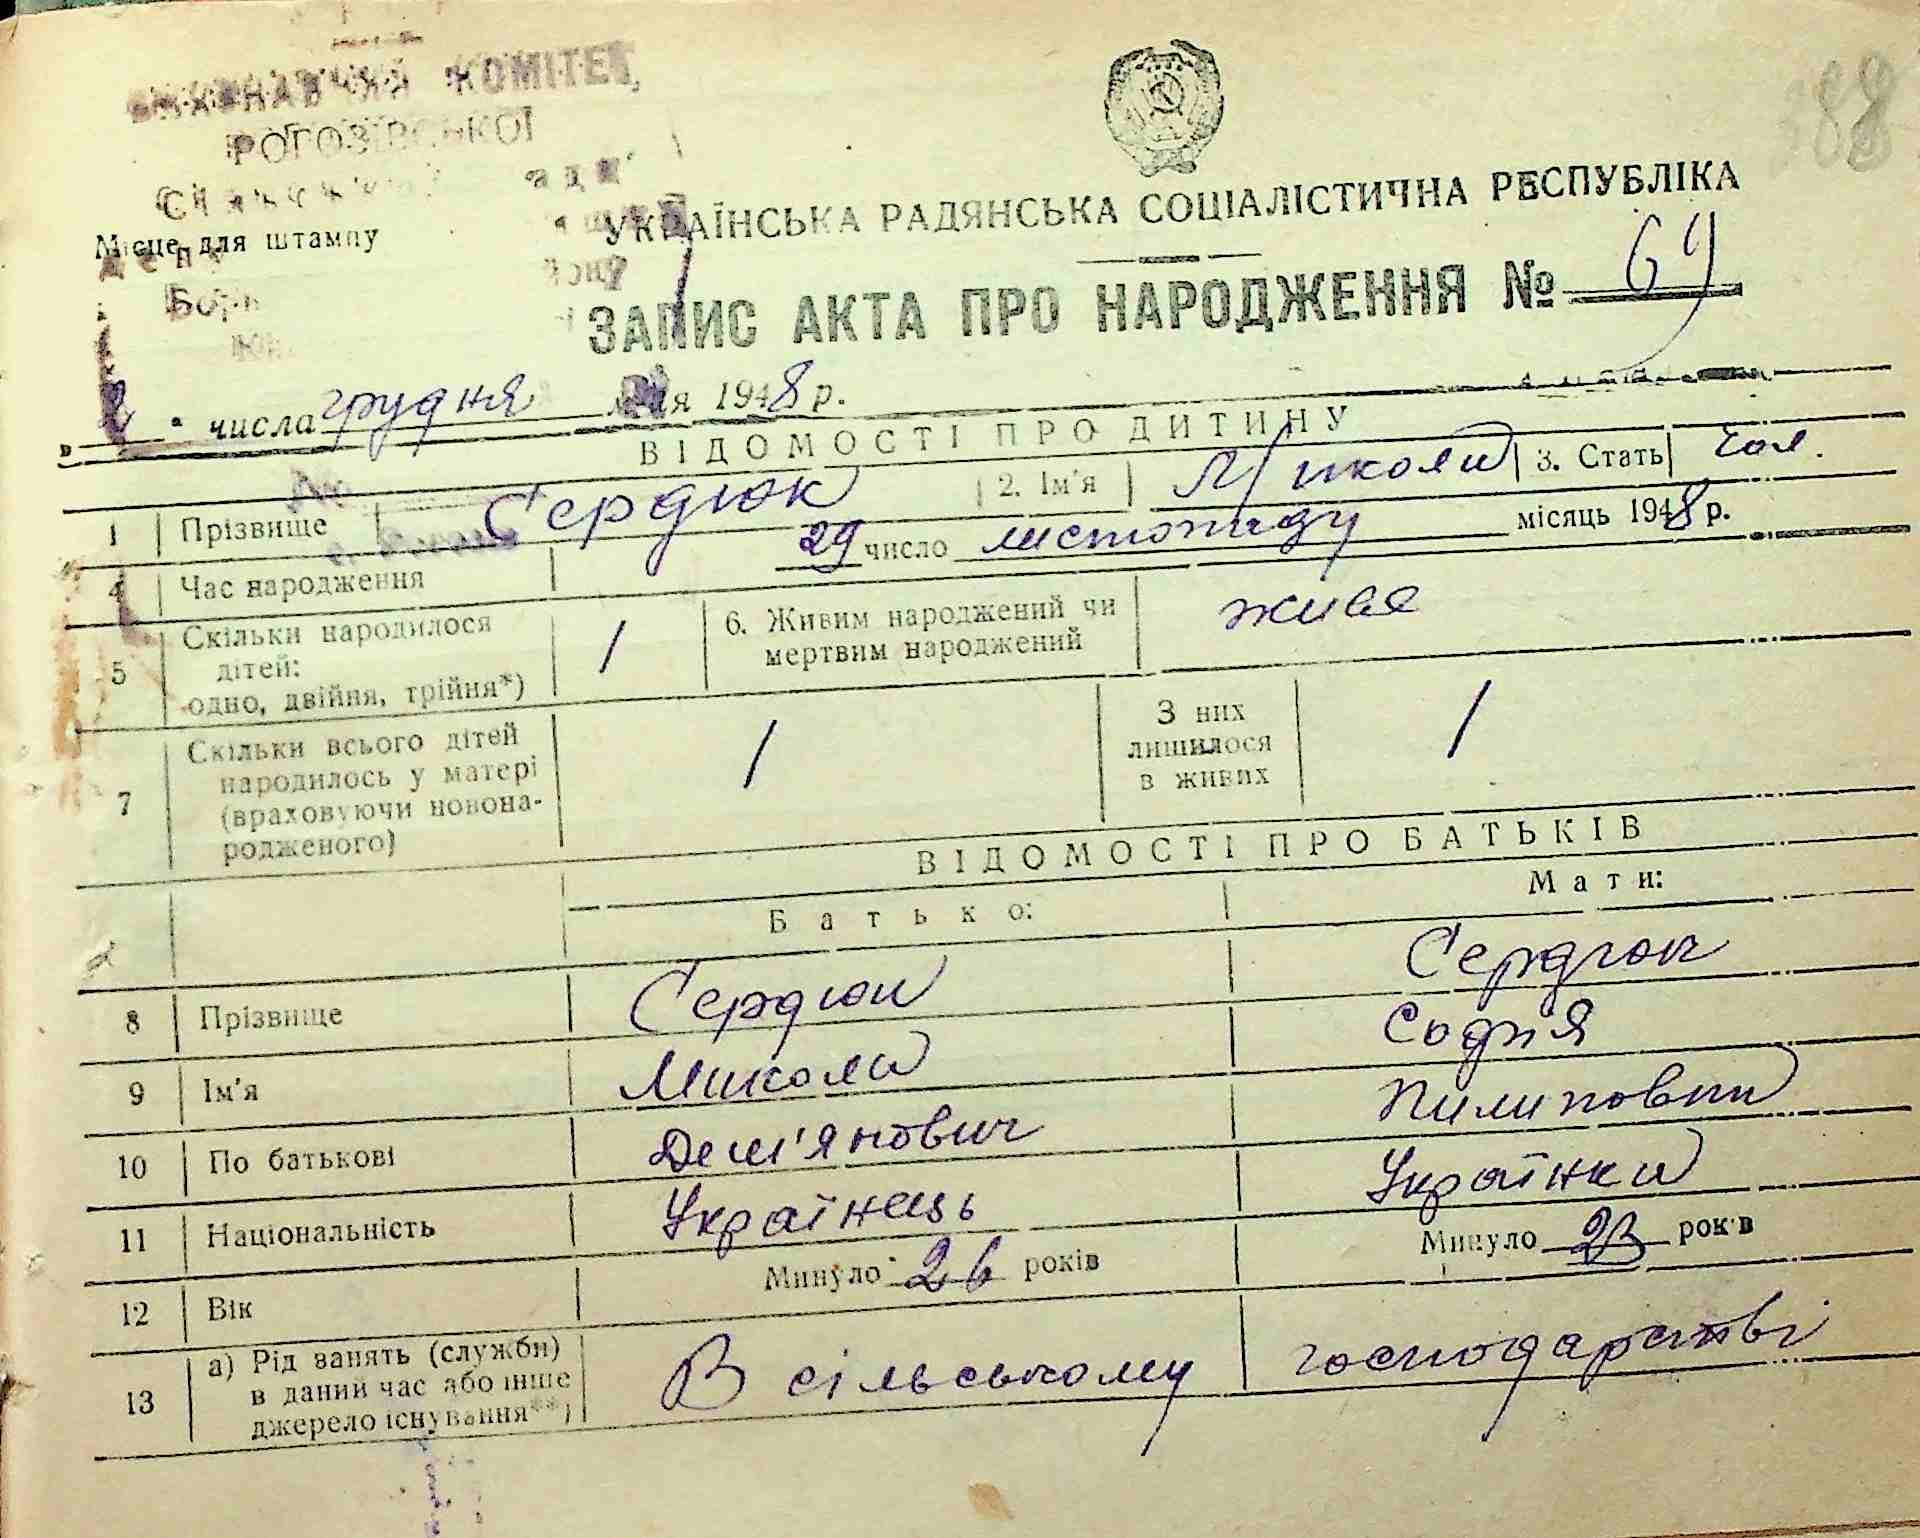 ВИКОНАВЧИЙ КОМІТЕТ
РОГОЗІВСЬКОЇ
Місце для штампу
88
УКРАЇНСЬКА РАДЯНСЬКА СОЦІАЛІСТИЧНА РЕСПУБЛІКА
ЗАПИС АКТА ПРО НАРОДЖЕННЯ № 69
„ 2 “ числа грудня м-ця 1948 р.
ВІДОМОСТІ ПРО ДИТИНУ
1 Прізвище Сердюк 2. Ім'я Микола 3. Стать чол.
4 Час народження 29 число листопаду місяць 1948 р.
5 Скільки народилося дітей: одно, двійня, трійня*) 1 6. Живим народжений чи мертвим народжений живе
7 Скільки всього дітей народилось у матері (враховуючи новонародженого) 1 З них лишилося в живих 1
ВІДОМОСТІ ПРО БАТЬКІВ
Батько: Мати:
8 Прізвище Сердюк Сердюк
9 Ім'я Микола Софія
10 По батькові Дем'янович Пилиповна
11 Національність Українець Українка
12 Вік Минуло 26 років Минуло 23 років
13 а) Рід занять (служби) в даний час або інше джерело існування**) В сільському господарстві